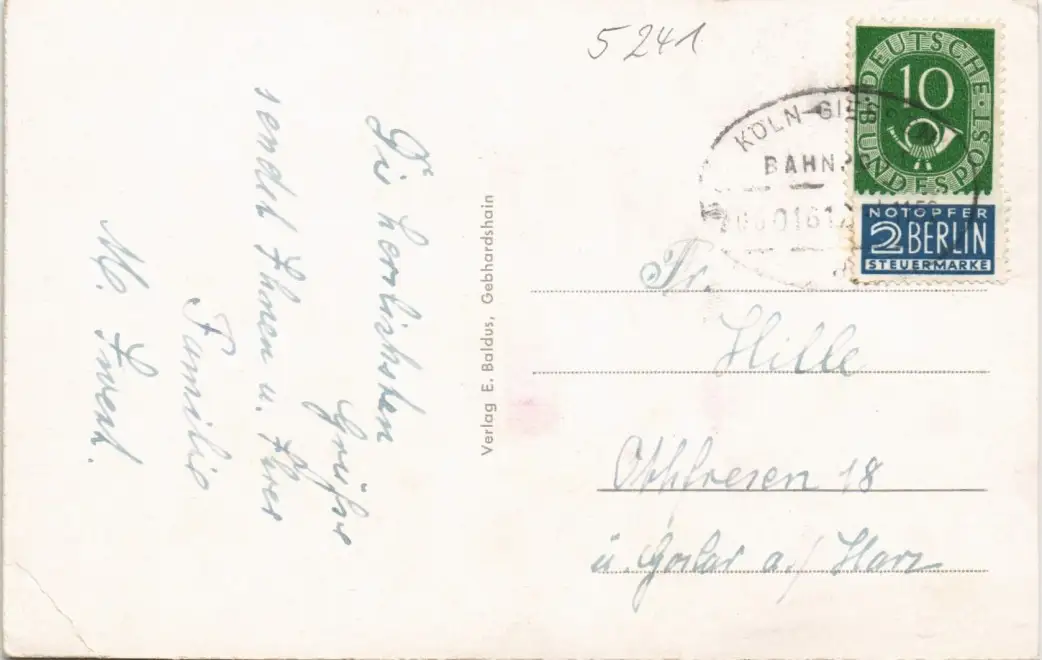 5241
DEUTSCHE BUNDESPOST
10
NOTOPFER
2 BERLIN
STEUERMARKE
KÖLN-GIE
BAHNPO
Die herzlichsten
Grüße
sendet Ihnen u. Ihrer
Familie
M.
Verlag E. Baldus, Gebhardshain
Fr.
Hille
Othfresen 18
ü. Goslar a./ Harz